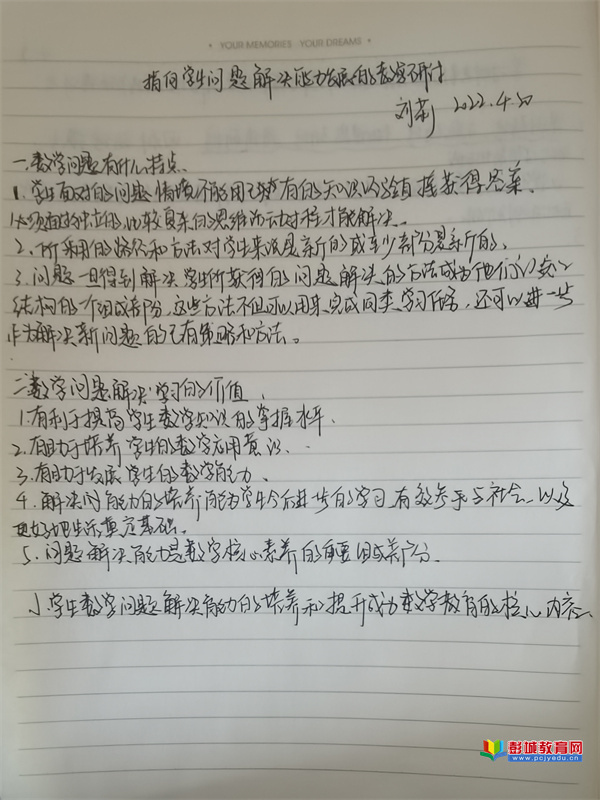 YOUR MEMORIES · YOUR DREAMS
指向学生问题解决能力发展的教学研讨
刘莉 2022.4.20
一.数学问题有什么特点.
1.学生面对的问题情境不能用已有的知识经验直接获得答案.
必须通过比较复杂的思维活动过程才能解决.
2.所采用的路径和方法对学生来说是新的或至少部分是新的.
3.问题一旦得到解决学生所获得的问题解决的方法成为他们认知
结构的一个组成部分,这些方法不但可以用来完成同类学习任务,还可以进一步
作为解决新问题的已有策略和方法。
二.数学问题解决学习的价值.
1.有利于提高学生数学知识的掌握水平.
2.有助于培养学生的数学应用意识.
3.有助于发展学生的数学能力.
4.解决问能力的培养能为学生今后进一步的学习,有效参与社会,以及
更好地生活奠定基础.
5.问题解决能力是数学核心素养的重要组成部分.
学生数学问题解决能力的培养和提升成为数学教育的核心内容.
彭城教育网
www.pcjyedu.cn